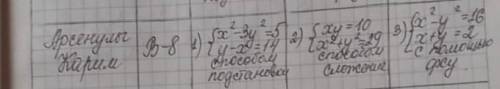 Арсенулы Карим
В-8
1) { x² - 3y² = 5
y - x = 14
способом подстановки
2) { xy = 10
x² + y² = 29
способом сложения
3) { x² - y² = 16
x + y = 2
с помощью фсу